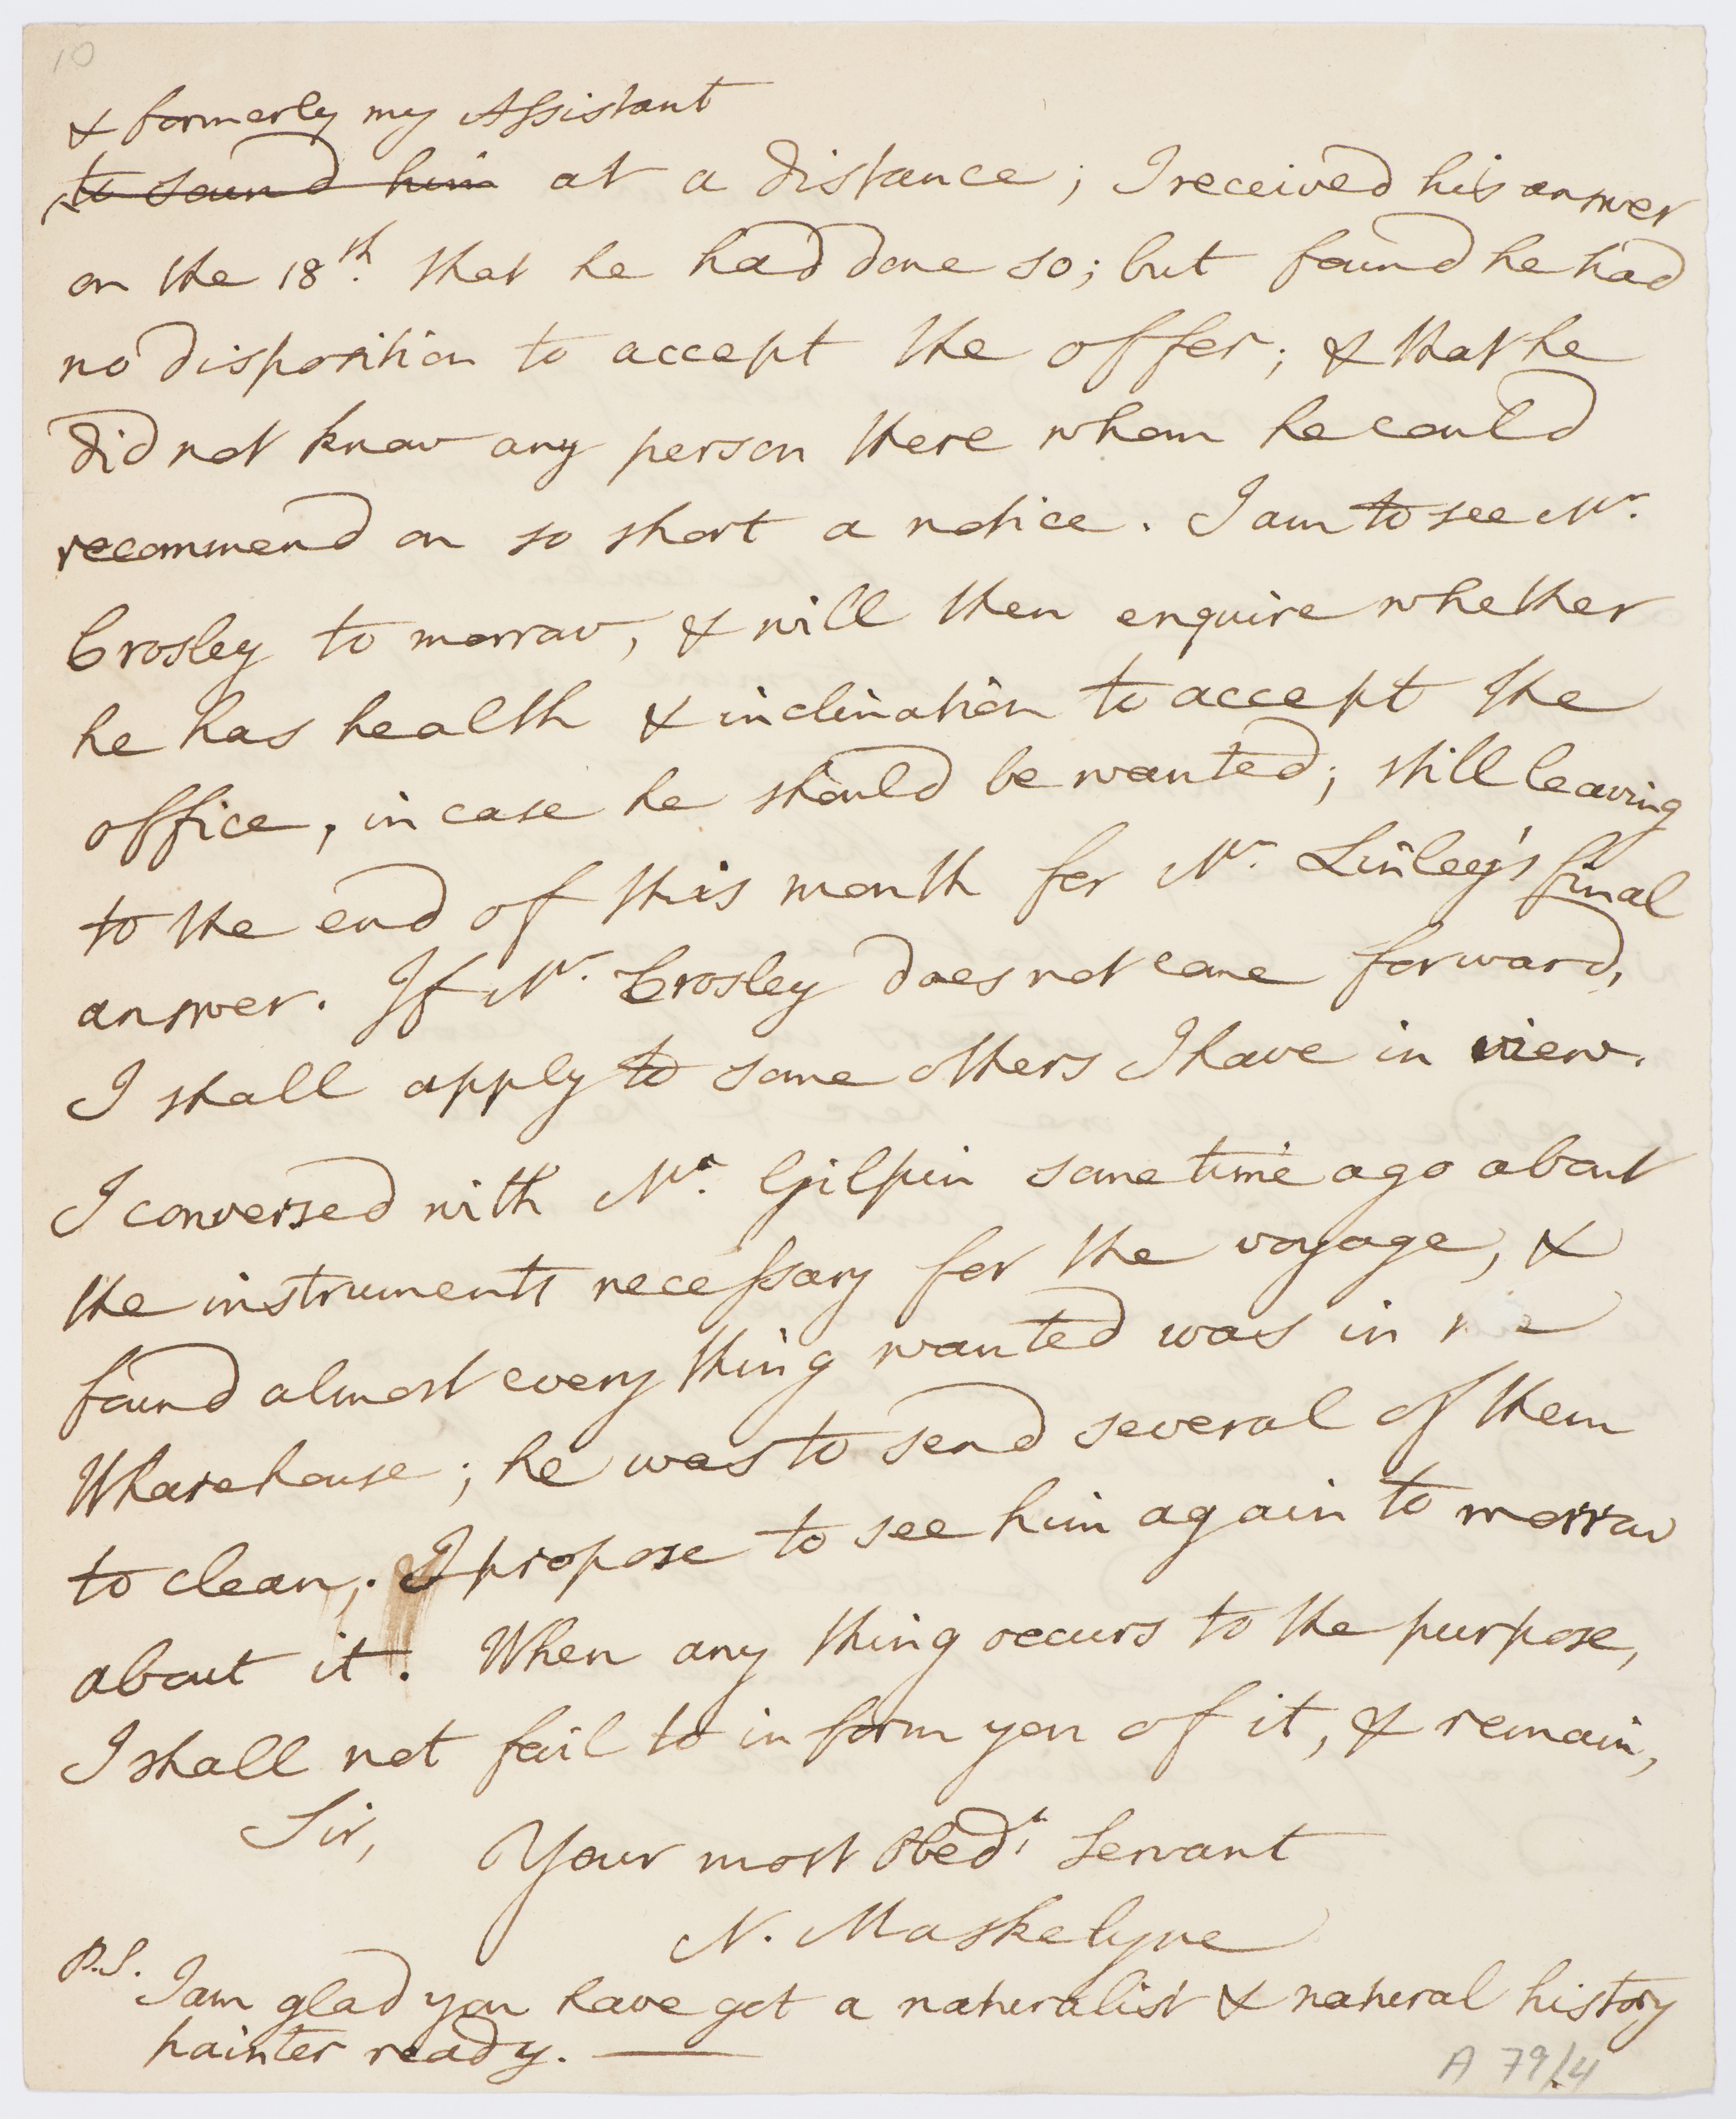 10
& formerly my Assistant
to sound him at a distance; I received his answer
on the 18th. that he had done so; but found he had
no disposition to accept the offer; & that he
did not know any person there whom he could
recommend on so short a notice. I am to see Mr.
Crosley to morrow, & will then enquire whether
he has health & inclination to accept the
office, in case he should be wanted; still leaving
to the end of this month for Mr. Linley's final
answer. If Mr. Crosley does not come forward,
I shall apply to some others I have in view.
I conversed with Mr. Gilpin some time ago about
the instruments necessary for the voyage, &
found almost every thing wanted was in
Wharehouse; he was to send several of them
to clean; I propose to see him again to morrow
about it. When any thing occurs to the purpose,
I shall not fail to inform you of it, & remain,
Sir,
Your most Obedt. Servant
N. Maskelyne
P.S. I am glad you have got a naturalist & natural history
painter ready.
A 79/4